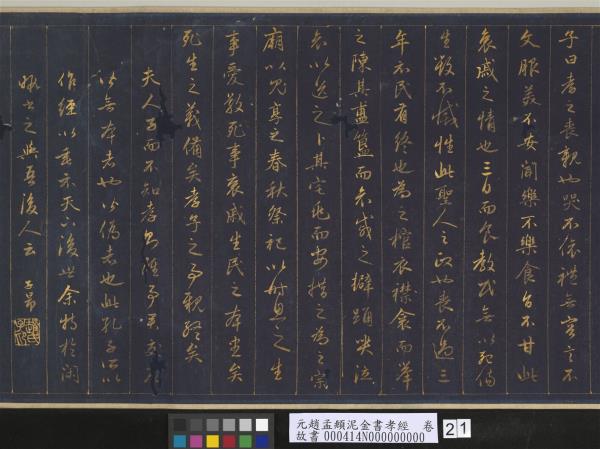 子曰孝之喪親也哭不依禮無容言不
文服美不安聞樂不樂食旨不甘此
哀戚之情也三日而食教民無以死傷
生毀不滅性此聖人之政也喪不過三
年示民有終也為之棺衣襟衾而舉
之陳其簠簋而哀戚之擗踊哭泣
哀以送之卜其宅兆而安措之為之宗
廟以鬼享之春秋祭祀以時思之生
事愛敬死事哀戚生民之本盡矣
死生之義備矣孝子之事親終矣
夫人子而不知孝
者也此孔子所以
作經以垂示天下後世余特於閑
書之與吾後人云 子昂
趙氏子昂
元趙孟頫泥金書孝經 卷
故書 000414N000000000
21